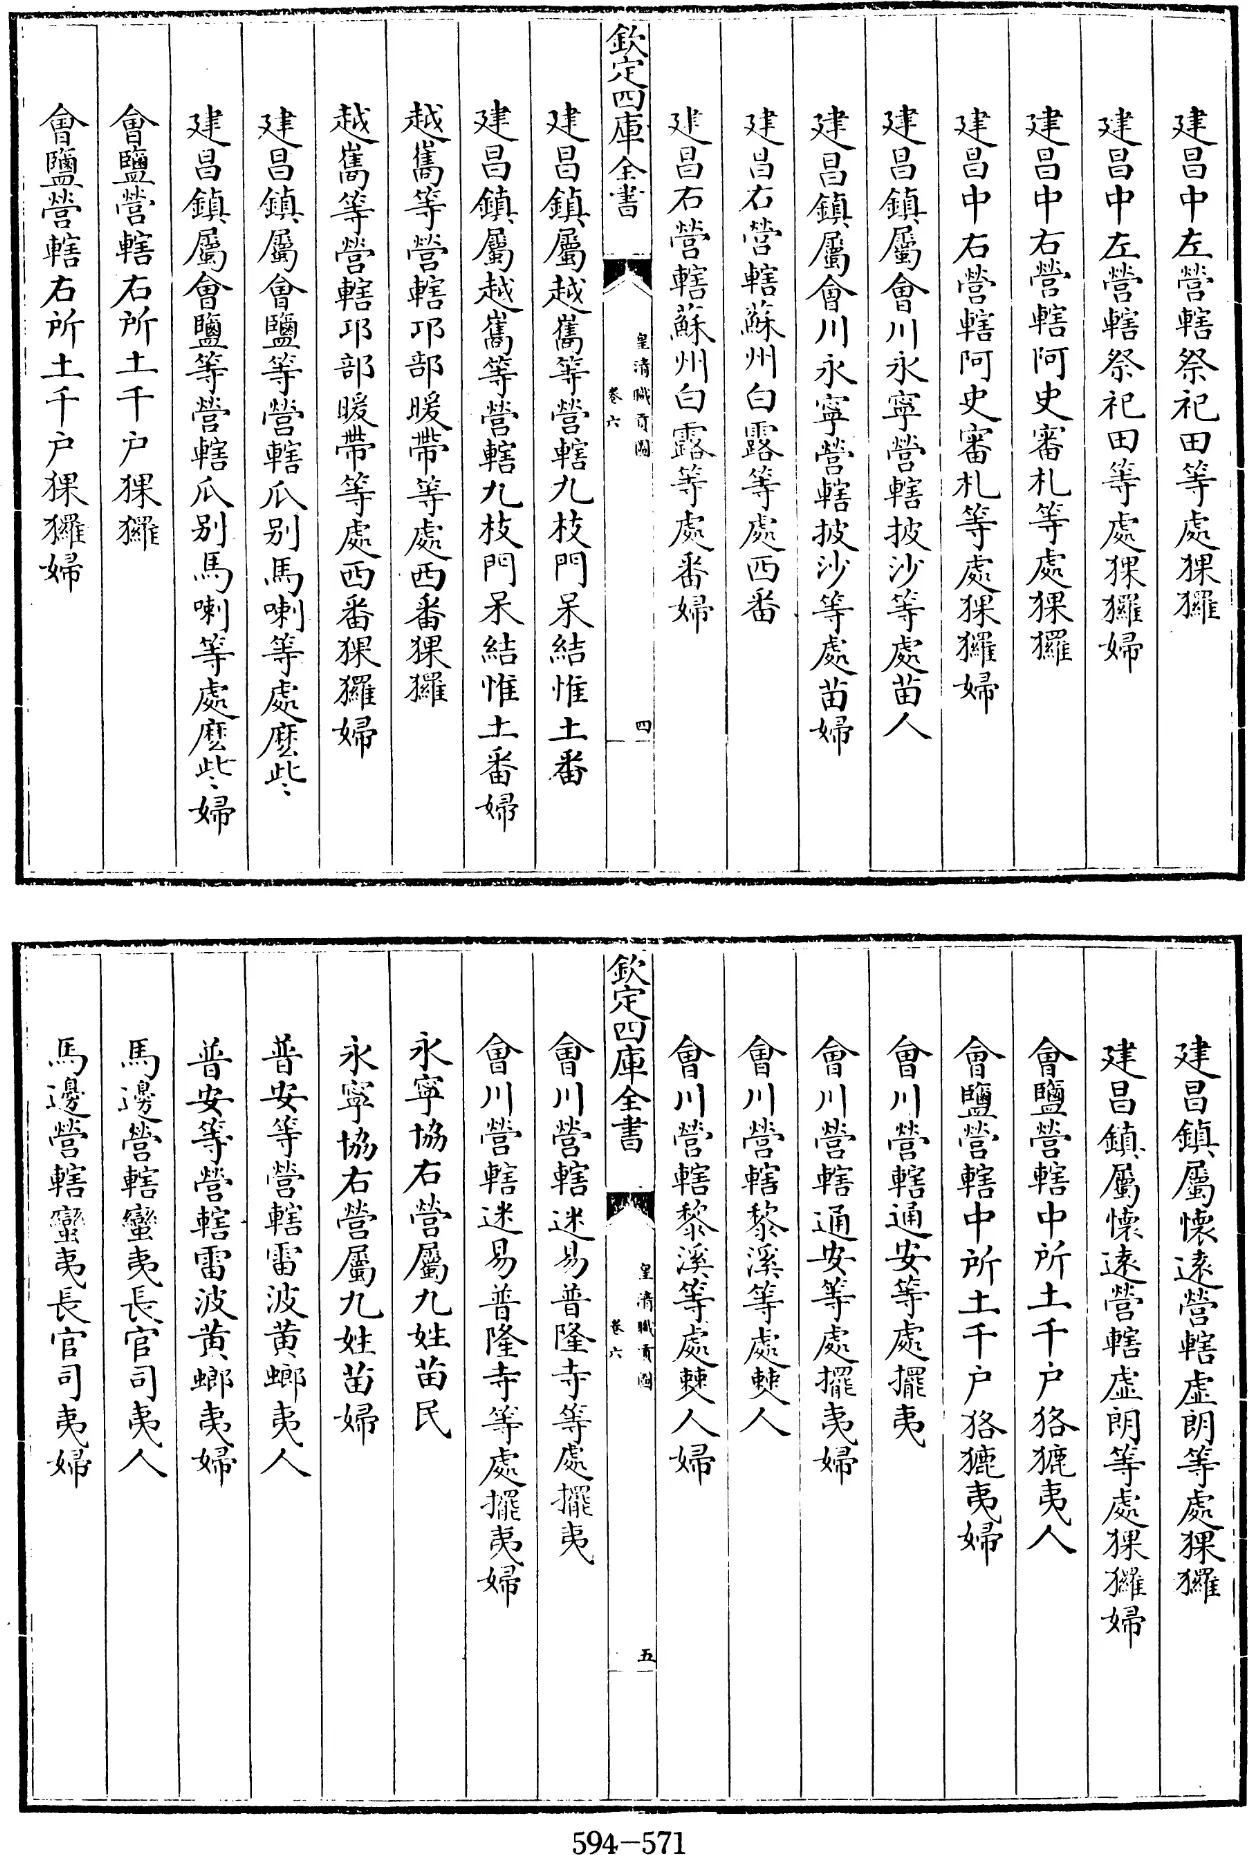 建昌中左營轄祭祀田等處猓玀
建昌中左營轄祭祀田等處猓玀婦
建昌中右營轄阿史審札等處猓玀
建昌中右營轄阿史審札等處猓玀婦
建昌鎮屬會川永寧營轄披沙等處苗人
建昌鎮屬會川永寧營轄披沙等處苗婦
建昌右營轄蘇州白露等處西番
建昌右營轄蘇州白露等處番婦
欽定四庫全書
皇清職貢圖
卷六
四
建昌鎮屬越嶲等營轄九枝門呆結惟土番
建昌鎮屬越嶲等營轄九枝門呆結惟土番婦
越嶲等營轄邛部暖帶等處西番猓玀
越嶲等營轄邛部暖帶等處西番猓玀婦
建昌鎮屬會鹽等營轄瓜別馬喇等處麽些
建昌鎮屬會鹽等營轄瓜別馬喇等處麽些婦
會鹽營轄右所土千户猓玀
會鹽營轄右所土千户猓玀婦
建昌鎮屬懷遠營轄虛朗等處猓玀
建昌鎮屬懷遠營轄虛朗等處猓玀婦
會鹽營轄中所土千户狢㹻夷人
會鹽營轄中所土千户狢㹻夷婦
會川營轄通安等處擺夷
會川營轄通安等處擺夷婦
會川營轄黎溪等處僰人
會川營轄黎溪等處僰人婦
欽定四庫全書
皇清職貢圖
卷六
五
會川營轄迷易普隆寺等處擺夷
會川營轄迷易普隆寺等處擺夷婦
永寧協右營屬九姓苗民
永寧協右營屬九姓苗婦
普安等營轄雷波黃螂夷人
普安等營轄雷波黃螂夷婦
馬邊營轄蠻夷長官司夷人
馬邊營轄蠻夷長官司夷婦
594-571